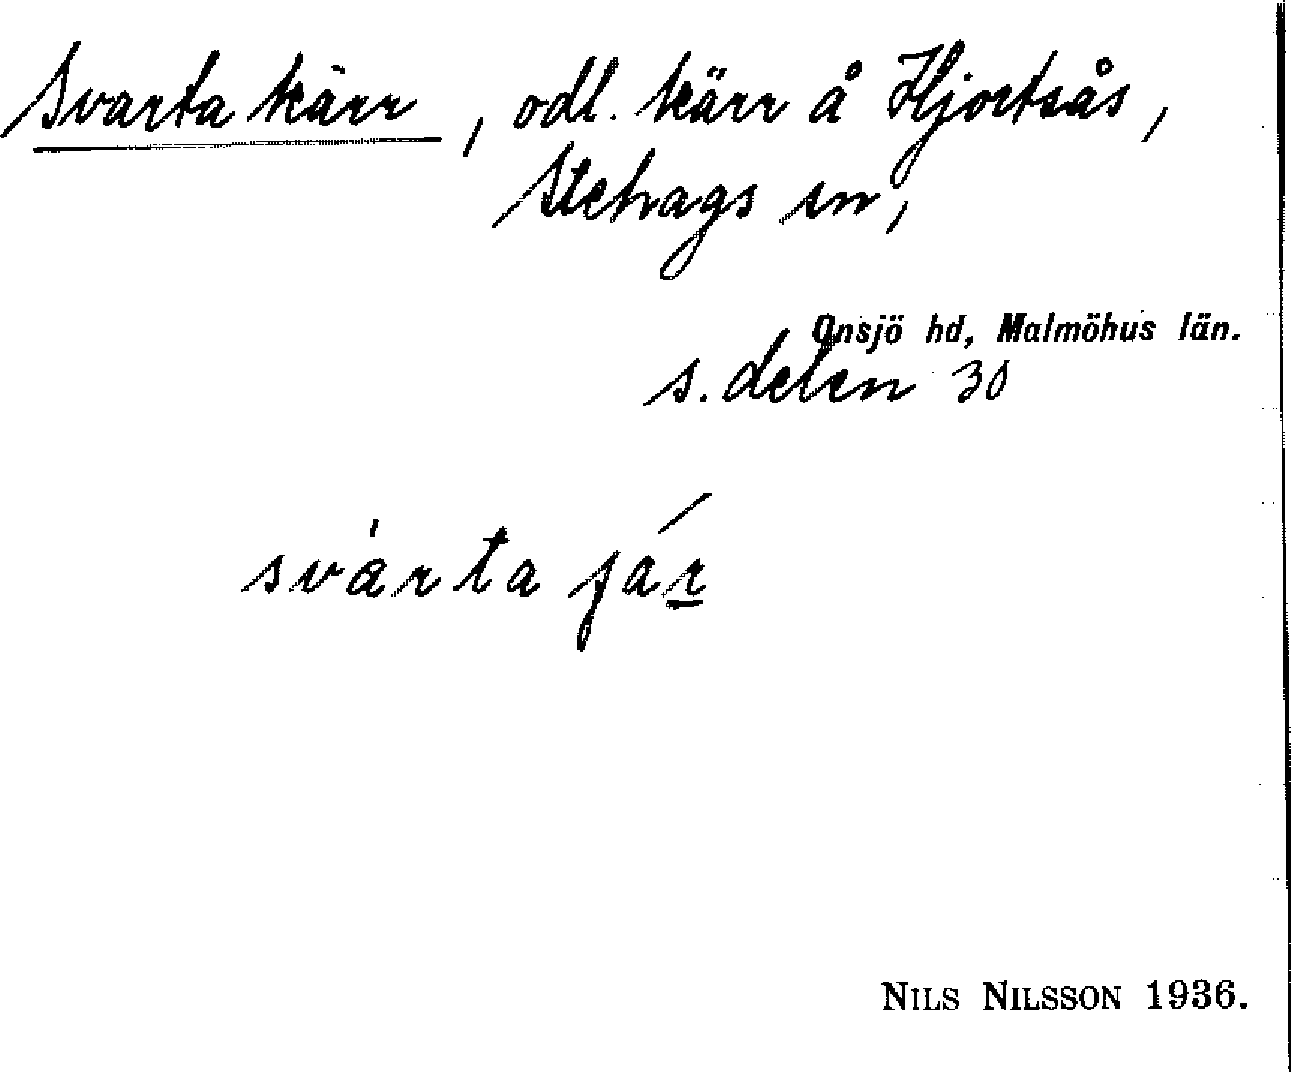 Svarta kärr, odl. kärr å Hjortsås,
Stehags sn,
Onsjö hd, Malmöhus län.
s. delen 30
svàrta fá<u>r</u>
NILS NILSSON 1936.